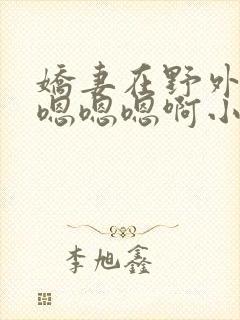 嬌妻在野外
嗯嗯嗯啊小
李旭鑫